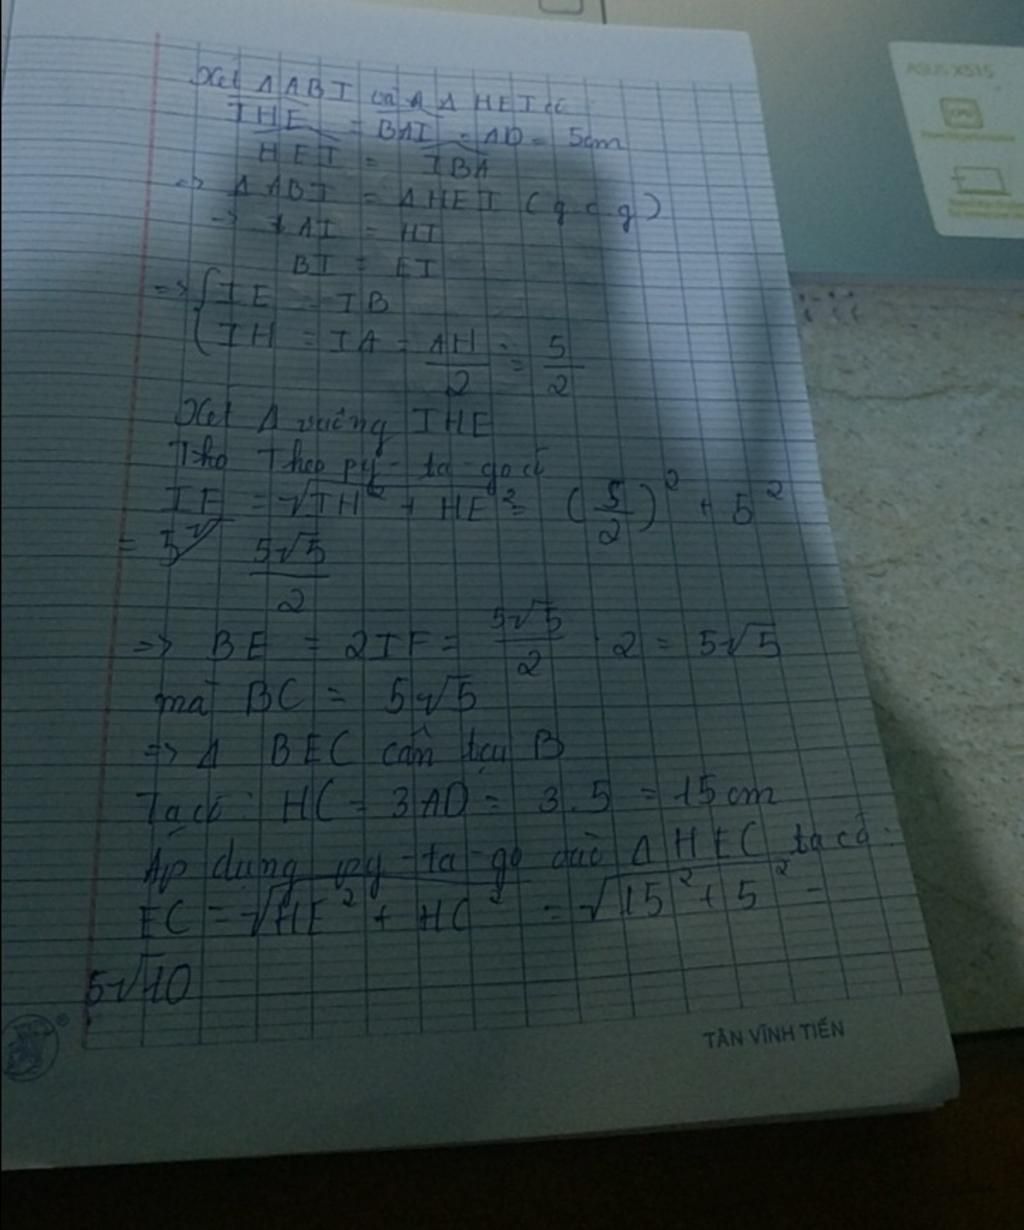 Xét Δ ABI và Δ HEI có
IHE = BAI = AD = 5cm
HEI = IBA
=> Δ ABI = Δ HEI (g c g)
=> AI = HI
BI = EI
=> { IE = IB
IH = IA = AH/2 = 5/2
Xét Δ vuông IHE
Tho Theo py-ta-go có
IE = √IH² + HE² = (5/2)² + 5²
= 5√5/2
=> BE = 2IE = 5√5/2 . 2 = 5√5
mà BC = 5√5
=> Δ BEC cân tại B
Ta có: HC = 3AD = 3.5 = 15cm
Áp dụng py-ta-go vào Δ HEC ta có:
EC = √HE² + HC² = √15² + 5² =
5√10
TÂN VĨNH TIẾN
ASUS X515